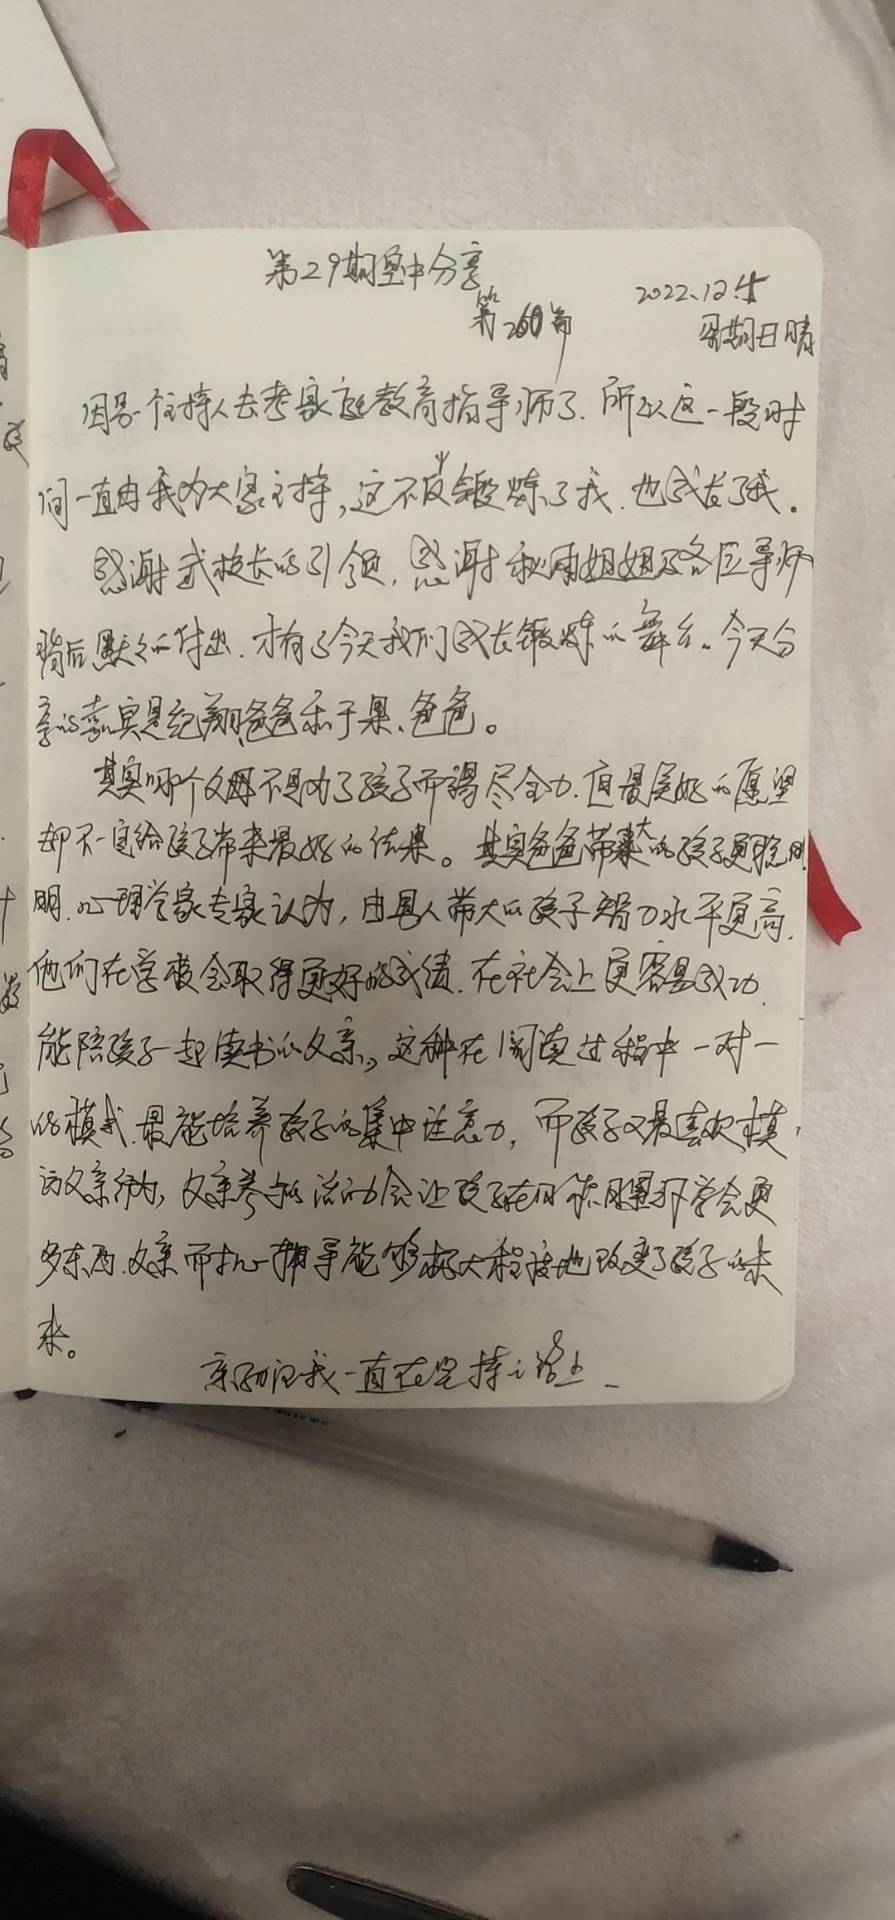 第29期空中分享
第260篇
2022.12.4
星期日晴
因另一个主持人去考家庭教育指导师了.所以这一段时
间一直由我为大家主持,这不仅锻炼了我.也成长了我。
感谢武校长的引领,感谢秋雨姐姐及各位导师
背后默默的付出.才有了今天我们成长锻炼的舞台。今天分
享的嘉宾是纪翔爸爸和于果、爸爸。
其实哪个父母不是为了孩子而竭尽全力.但最美好的愿望
却不一定给孩子带来最好的结果。其实爸爸带大的孩子更聪
明.心理学家专家认为,由男人带大的孩子智力水平更高.
他们在学校会取得更好的成绩.在社会上更容易成功.
能陪孩子一起读书的父亲,这种在阅读过程中一对一
的模式.最能培养孩子的集中注意力,而孩子又最喜欢模
仿父亲行为,父亲参与的活动会让孩子在明学会更
多东西.父亲而辅导能够极大程度地改变了孩子的未
来。
亲子日记我一直在坚持的路上